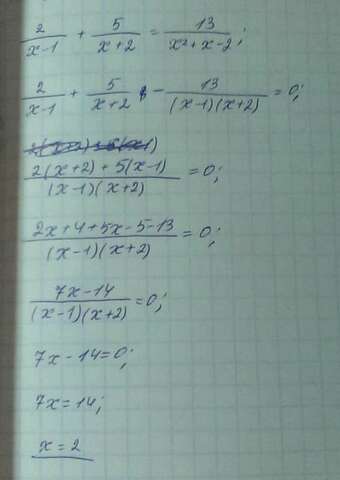 2/(x-1) + 5/(x+2) = 13/(x²+x-2);
2/(x-1) + 5/(x+2) - 13/((x-1)(x+2)) = 0;
(2(x+2) + 5(x-1))/((x-1)(x+2)) = 0;
(2x+4+5x-5-13)/((x-1)(x+2)) = 0;
(7x-14)/((x-1)(x+2)) = 0;
7x-14=0;
7x=14;
x=2